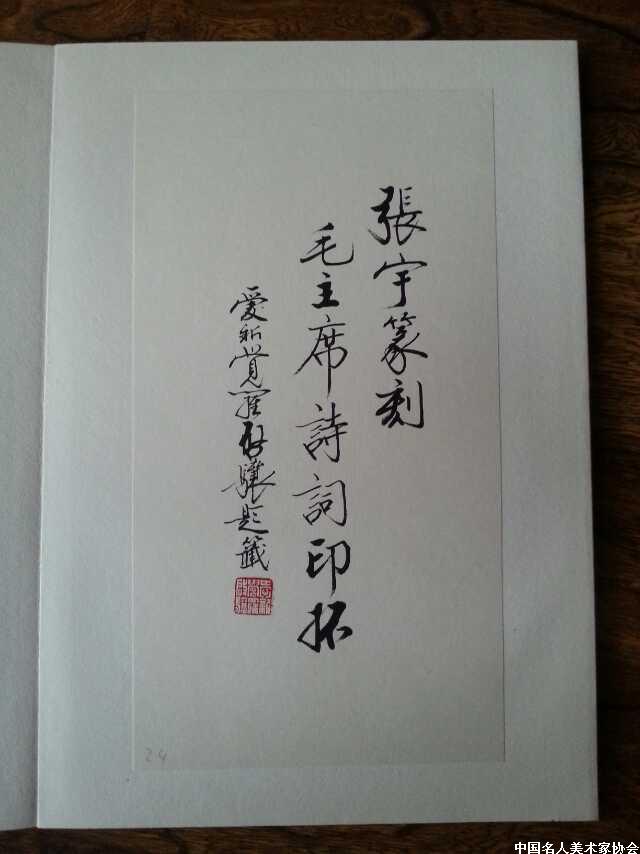 張宇篆刻
毛主席詩詞印拓
愛新覺羅啟驤題籤
24
中国名人美术家协会